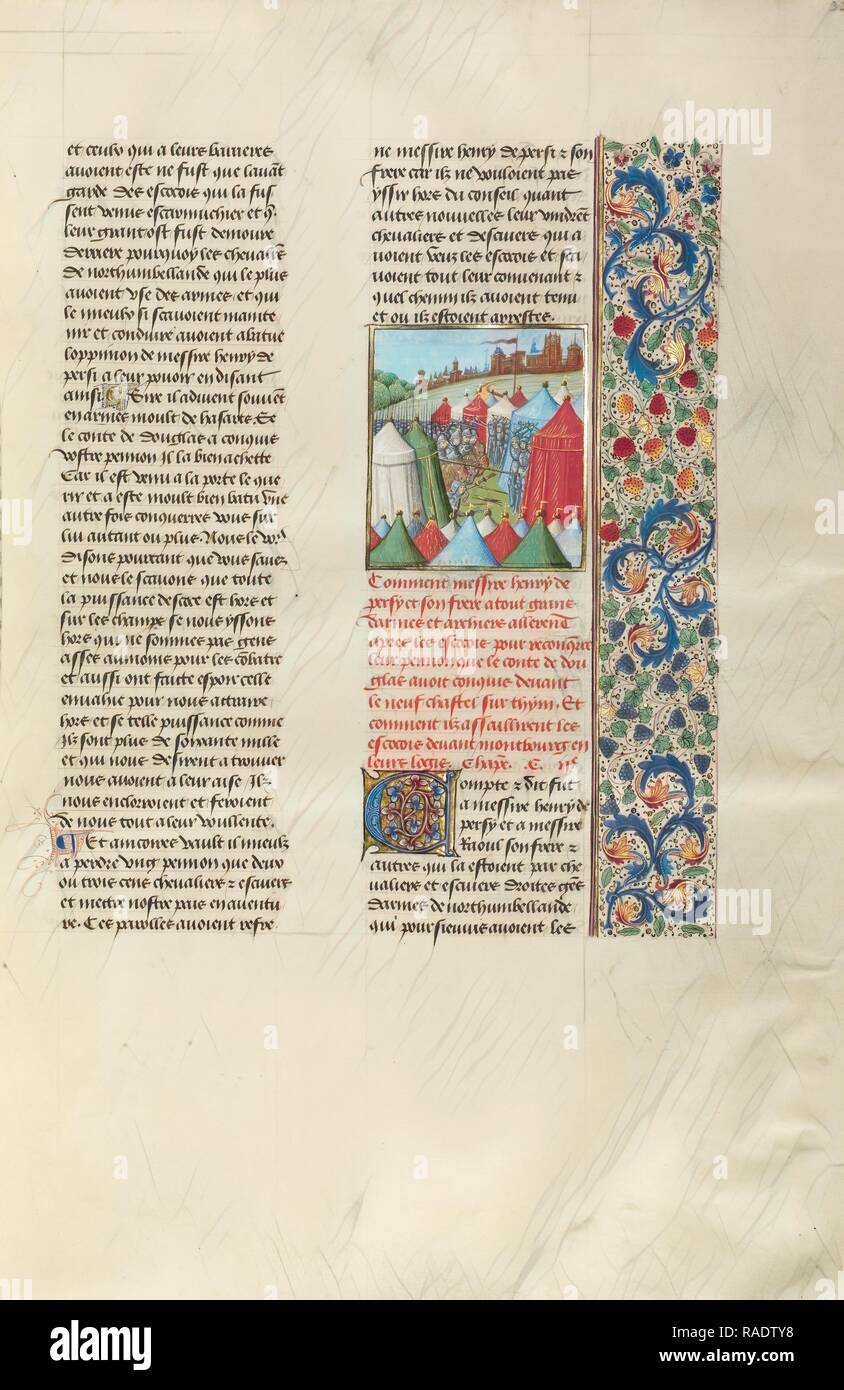 et ceulx qui a leurs barrieres
avoient este ne fust que lavāt
garde des escocois qui la fus
sent venus escarmuchier et q̄
leur grant ost fust demoure
derriere pourquoy les chevalīes
de northumbellande qui le plus
avoient use des armes et qui
le mieulx si scavoient mainte
nir et conduire avoient abatue
loppinion de messire henry de
persi a leur povoir en disant
ainsi Sire il advient souvēt
en armes moult de hasars. Se
le conte de douglas a conquis
vostre pennon il la bien achette
Car il est venu a la porte le que
rir et a este moult bien batu vne
autre fois conquerres vous sur
lui autant ou plus. Nous le vo9
disons pourtant que vous savez
et nous le scavons que toute
la puissance descoce est hors et
sur les champs se nous yssons
hors qui ne sommes pas gens
asses au moins pour les cōbatre
et aussi ont faitte espoir celle
envahie pour nous attraire
hors et se telle puissance comme
Ilz sont plus de soixante mille
et qui nous desirent a trouver
nous avoient a leur aise Ilz
nous encloroient et feroient
de nous tout a leur voullente.
Et aincores vault il mieulz
a perdre vng pennon que deux
ou trois cens chevaliers et escuiers
et mettre nostre pais en aventu
re. Ces parolles avoient refre
ne messire henry de persi et son
frere car ilz ne vouloient pas
yssir hors du conseil quant
autres nouvelles leur vindrēt
chevaliers et descuiers qui a
voient veuz les escocois et sca
voient tout leur convenant et
quel chemin ilz avoient tenu
et ou ilz estoient arrestes.
Comment messire henry de
persy et son frere a tout grans
darmes et archiers allerent
apres les escocois pour reconq̄rre
leur pennon que le conte de dou
glas avoit conquis devant
le neuf chastel sur thym. Et
comment ilz assaillirent les
escocois devant montbourg en
leurs logis. Chapī. C.
Compte et dit fut
a messire henry de
persy et a messire
Raoul son frere et
autres qui la estoient par che
valiers et escuiers droites gēs
darmes de northumbellande
qui poursieuvis avoient les
alamy
Image ID: RADTY8
www.alamy.com